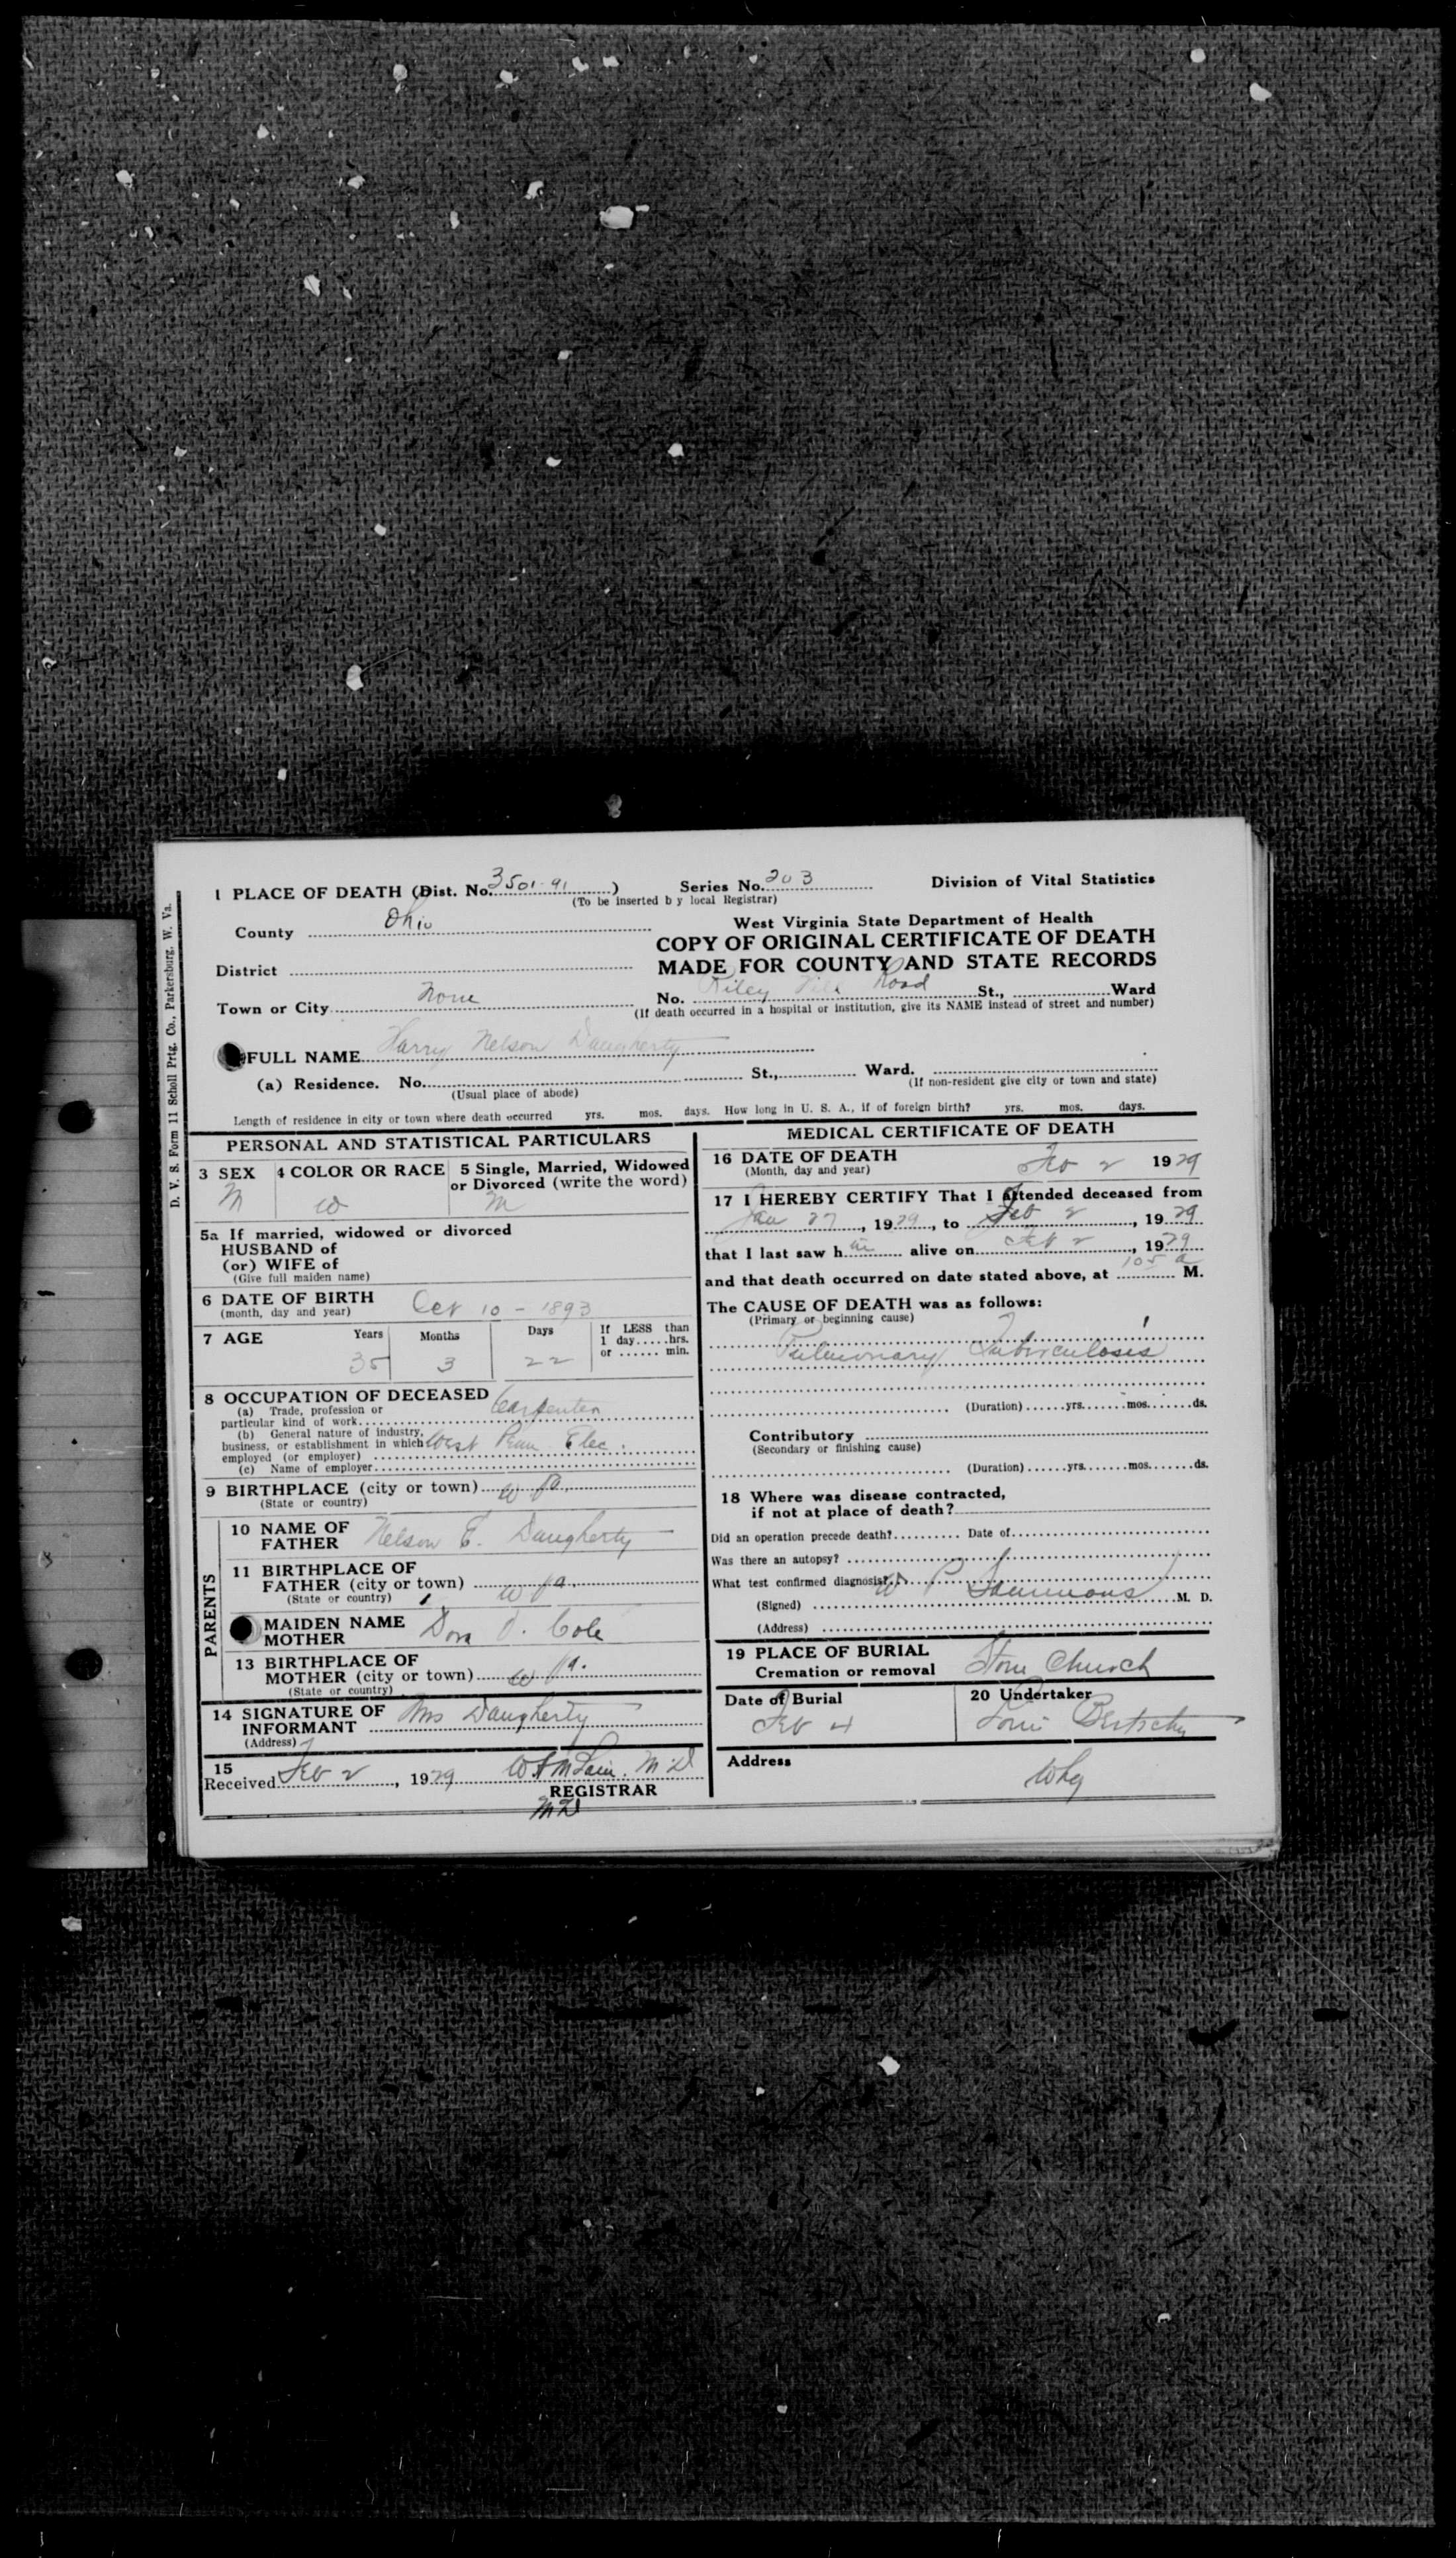 D. V. S. Form 11 Scholl Prtg. Co., Parkersburg, W. Va.
1 PLACE OF DEATH (Dist. No. 3501-91 ) Series No. 203 Division of Vital Statistics
(To be inserted b y local Registrar)
County Ohio West Virginia State Department of Health
COPY OF ORIGINAL CERTIFICATE OF DEATH
District MADE FOR COUNTY AND STATE RECORDS
Town or City None No. Riley Hill Road St., Ward
(If death occurred in a hospital or institution, give its NAME instead of street and number)
FULL NAME Harry Nelson Daugherty
(a) Residence. No. St., Ward.
(Usual place of abode) (If non-resident give city or town and state)
Length of residence in city or town where death occurred yrs. mos. days. How long in U. S. A., if of foreign birth? yrs. mos. days.
PERSONAL AND STATISTICAL PARTICULARS
3 SEX 4 COLOR OR RACE 5 Single, Married, Widowed
or Divorced (write the word)
M W M
5a If married, widowed or divorced
HUSBAND of
(or) WIFE of
(Give full maiden name)
6 DATE OF BIRTH Oct 10 - 1893
(month, day and year)
7 AGE Years Months Days If LESS than
1 day.....hrs.
or ...... min.
35 3 22
8 OCCUPATION OF DECEASED Carpenter
(a) Trade, profession or
particular kind of work
(b) General nature of industry,
business, or establishment in which West Penn Elec.
employed (or employer)
(c) Name of employer
9 BIRTHPLACE (city or town) W Va.
(State or country)
PARENTS
10 NAME OF
FATHER Nelson E. Daugherty
11 BIRTHPLACE OF
FATHER (city or town) W Va.
(State or country)
MAIDEN NAME
MOTHER Dora Cole
13 BIRTHPLACE OF
MOTHER (city or town) W Va.
(State or country)
14 SIGNATURE OF
INFORMANT Mrs Daugherty
(Address)
15
Received Feb 2, 1929 M.D
REGISTRAR
MD
MEDICAL CERTIFICATE OF DEATH
16 DATE OF DEATH
(Month, day and year) Feb 2 1929
17 I HEREBY CERTIFY That I attended deceased from
Jan 27, 1929, to Feb 2, 1929
that I last saw h im alive on Feb 2, 1929
and that death occurred on date stated above, at 105 a M.
The CAUSE OF DEATH was as follows:
(Primary or beginning cause)
Pulmonary Tuberculosis
(Duration) ......yrs.......mos.......ds.
Contributory
(Secondary or finishing cause)
(Duration) ......yrs.......mos.......ds.
18 Where was disease contracted,
if not at place of death?
Did an operation precede death? Date of
Was there an autopsy?
What test confirmed diagnosis?
(Signed) W P Sammons M. D.
(Address)
19 PLACE OF BURIAL
Cremation or removal Stone Church
Date of Burial 20 Undertaker
Feb 4 Louis Bertschy
Address
Whg